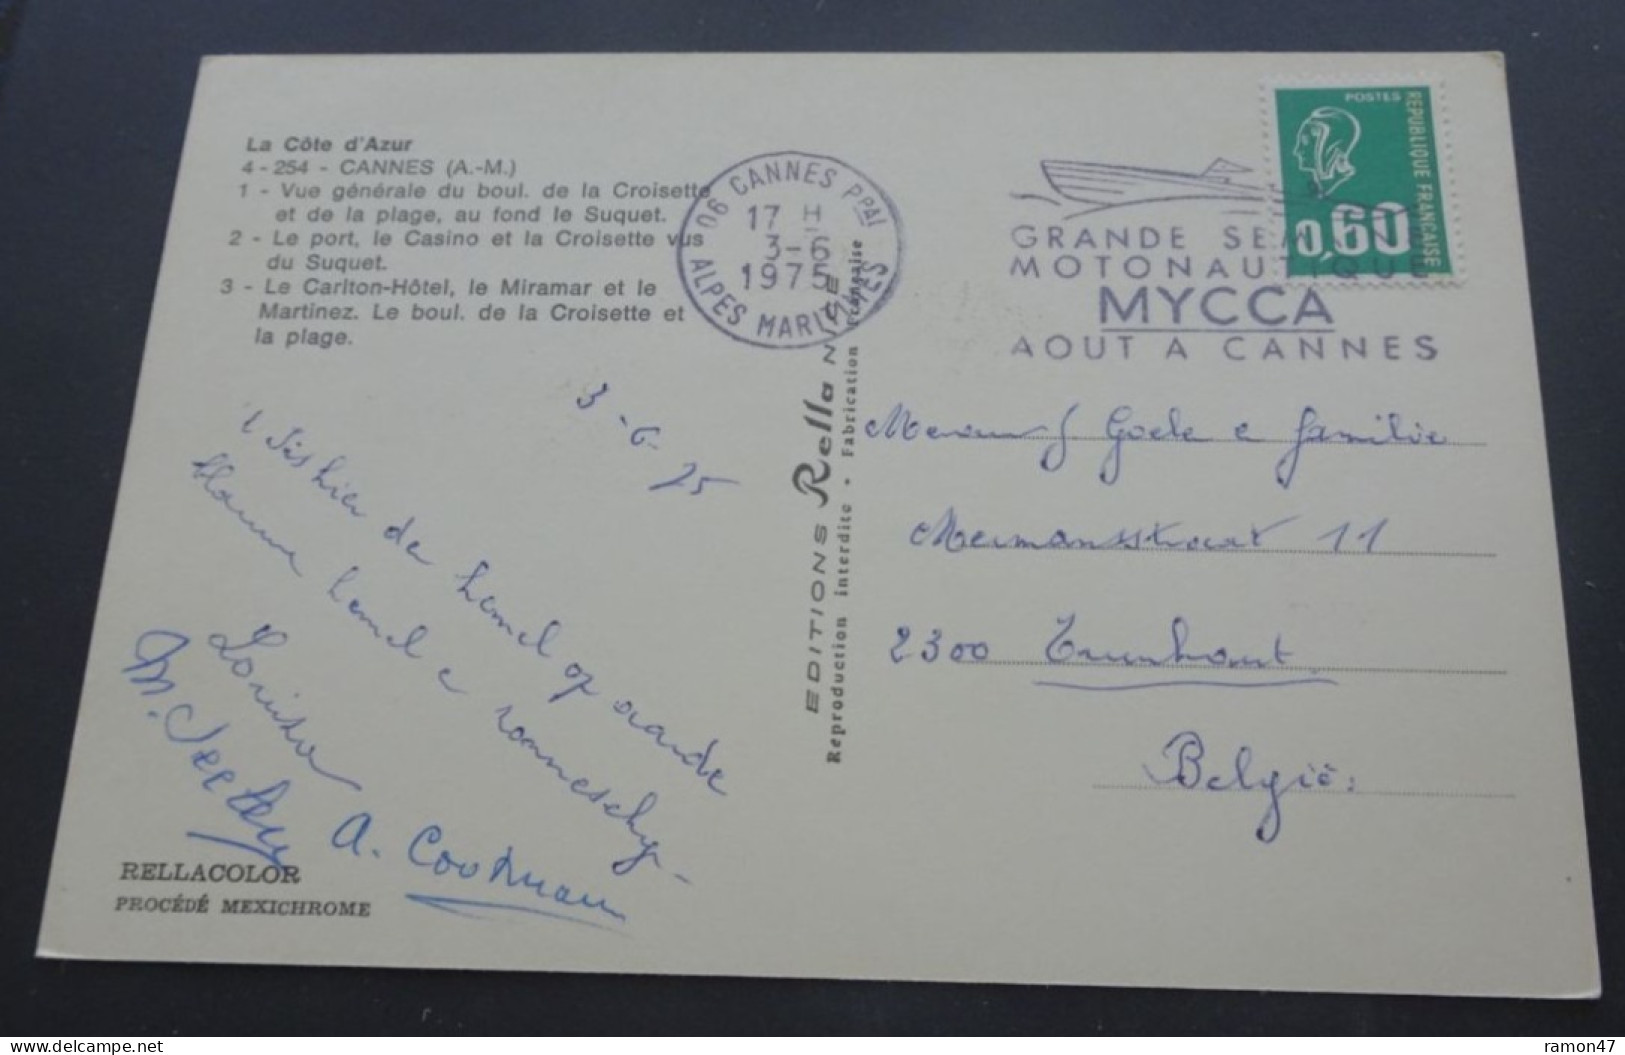 La Côte d'Azur
4 - 254 - CANNES (A.-M.)
1 - Vue générale du boul. de la Croisette
et de la plage, au fond le Suquet.
2 - Le port, le Casino et la Croisette vus
du Suquet.
3 - Le Carlton-Hôtel, le Miramar et le
Martinez. Le boul. de la Croisette et
la plage.
06 CANNES PPAL
17 H
3-6
1975
ALPES MARITIMES
POSTES
REPUBLIQUE FRANCAISE
0,60
GRANDE SEMAINE
MOTONAUTIQUE
MYCCA
AOUT A CANNES
3-6-75
't Is hier de hemel op aarde
blauwe hemel e zonneschijn -
Louisa
A. Cooreman
RELLACOLOR
PROCÉDÉ MEXICHROME
EDITIONS Rella NICE
Reproduction interdite • Fabrication Française
Goele e familie
Mermansstraat 11
2300 Turnhout
België:
ramon47